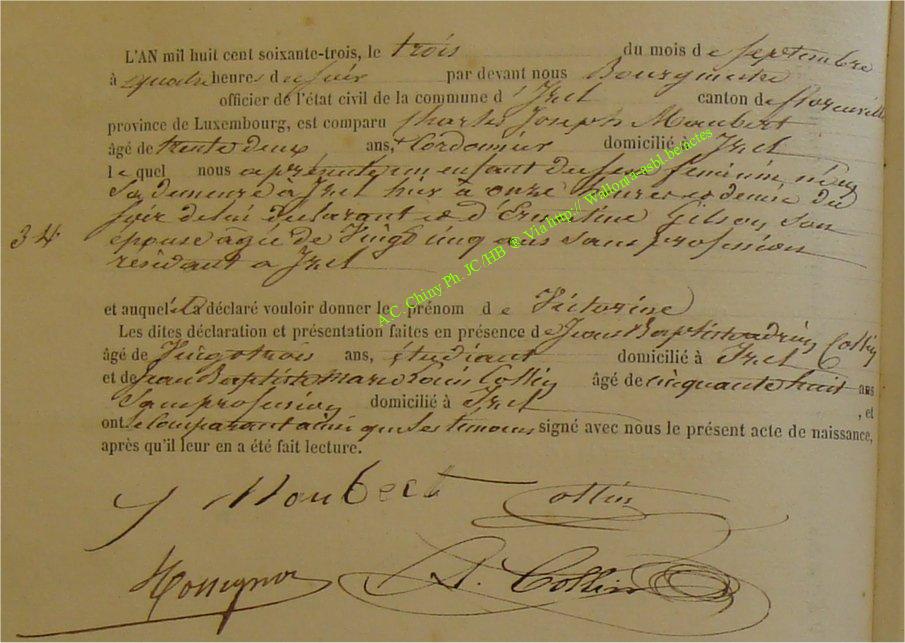 L'AN mil huit cent soixante-trois, le trois du mois de septembre
à quatre heures du soir par devant nous Bourgmestre
officier de l'état civil de la commune d'Izel canton de Florenville
province de Luxembourg, est comparu Charles Joseph Maubert
âgé de trente deux ans, Cordonnier domicilié à Izel
lequel nous a présenté un enfant du sexe féminin née
Sa demeure à Izel hier à onze heures et demie du
soir de lui déclarant et d'Ernestine Gilson, son
34
épouse agée de Vingt cinq ans sans profession
résidant a Izel
et auquel il a déclaré vouloir donner le prénom de Victorine
Les dites déclaration et présentation faites en présence de Jean Baptiste adrien Collin
âgé de Vingt trois ans, étudiant domicilié à Izel
et de Jean Baptiste Marie Louis Collin âgé de cinquante huit ans
Sans profession domicilié à Izel , et
ont le Comparant ainsi que les temoins signé avec nous le présent acte de naissance,
après qu'il leur en a été fait lecture.
J Maubert Collin
A. Collin
A.C. Chiny Ph. JC /HB ® Via http:// Wallonia-asbl.be/actes